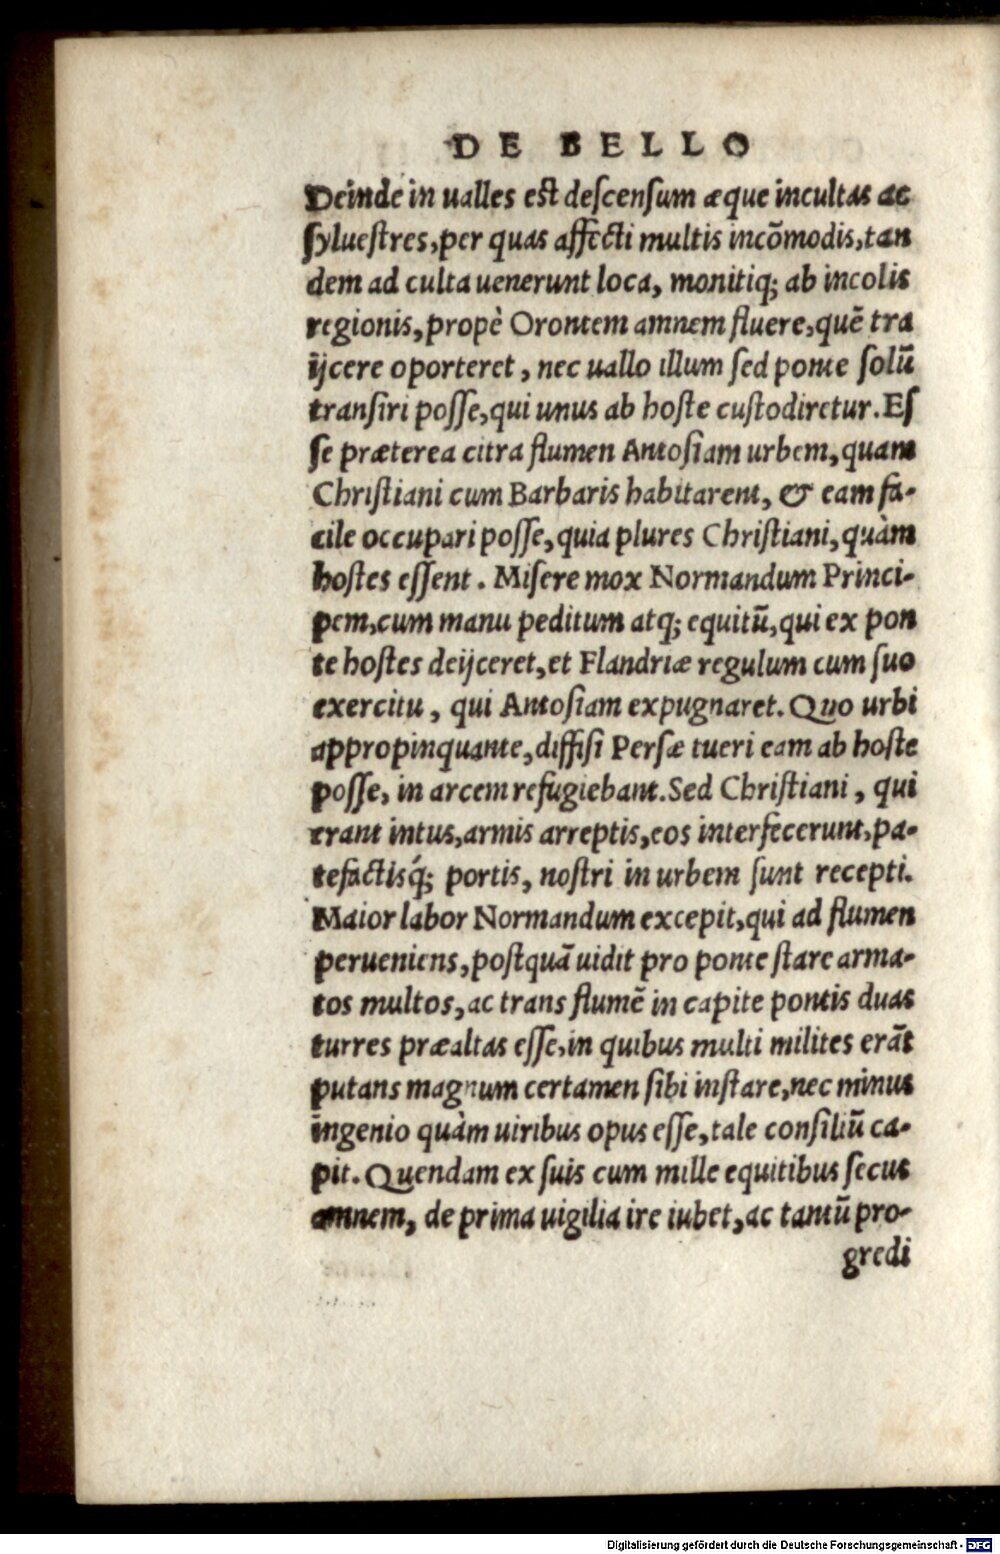 DE BELLO
Deinde in ualles est descensum æque incultas ac
syluestres, per quas affecti multis incōmodis, tan
dem ad culta uenerunt loca, monitiq; ab incolis
regionis, propè Orontem amnem fluere, quē tra
ijcere oporteret, nec uallo illum sed ponte solū
transiri posse, qui unus ab hoste custodiretur. Es
se præterea citra flumen Antosiam urbem, quam
Christiani cum Barbaris habitarent, & eam fa-
cile occupari posse, quia plures Christiani, quàm
hostes essent. Misere mox Normandum Princi-
pem, cum manu peditum atq; equitū, qui ex pon
te hostes deijceret, et Flandriæ regulum cum suo
exercitu, qui Antosiam expugnaret. Quo urbi
appropinquante, diffisi Persæ tueri eam ab hoste
posse, in arcem refugiebant. Sed Christiani, qui
erant intus, armis arreptis, eos interfecerunt, pa-
tefactisq́; portis, nostri in urbem sunt recepti.
Maior labor Normandum excepit, qui ad flumen
perueniens, postquā uidit pro ponte stare arma-
tos multos, ac trans flumē in capite pontis duas
turres præaltas esse, in quibus multi milites erāt
putans magnum certamen sibi instare, nec minus
ingenio quàm uiribus opus esse, tale consiliū ca-
pit. Quendam ex suis cum mille equitibus secus
amnem, de prima uigilia ire iubet, ac tantū pro-
gredi
Digitalisierung gefördert durch die Deutsche Forschungsgemeinschaft - DFG